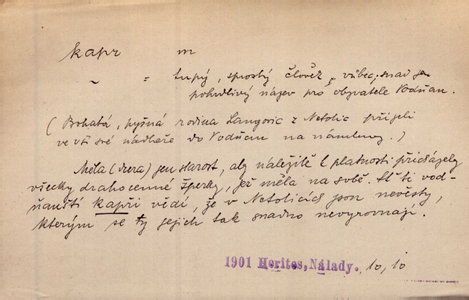 kapr m
~ = tupý, sprostý člověk, vůbec snad jen
pohrdlivý název pro obyvatele Vodňan.
(Bohatá, pyšná rodina Langovic z Netolic přijeli
ve vší své nádheře do Vodňan na námluvy.)
Měla (dcera) jen starost, aby náležitě k platnosti přicházely
všecky drahocenné šperky, jež měla na sobě. Ať ti vod-
ňanští kapři vědí, že v Netolicích jsou nevěsty,
kterým se ty jejich tak snadno nevyrovnají.
1901 Herites, Nálady. 10, 10